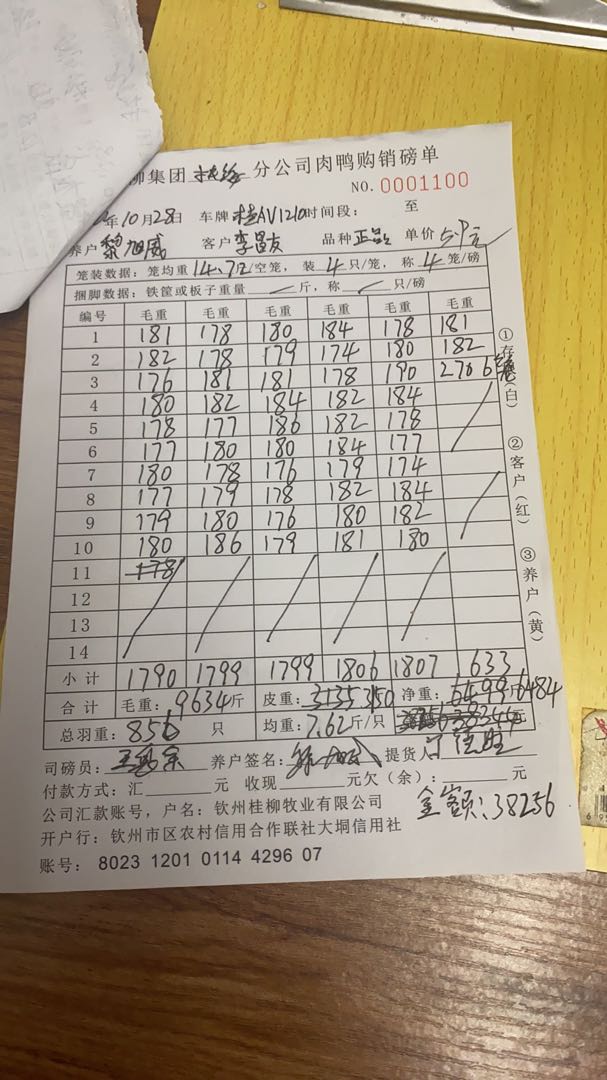 柳集团 分公司肉鸭购销磅单
NO. 0001100
年10月28日 车牌 桂AV1210 时间段: 至
养户 黎旭威 客户 李昌友 品种 正品 单价 5.9元
笼装数据: 笼均重 14.72 空笼, 装 4 只/笼, 称 4 笼/磅
捆脚数据: 铁筐或板子重量 斤, 称 只/磅
编号 毛重 毛重 毛重 毛重 毛重 毛重
1 181 178 180 184 178 181
2 182 178 179 174 180 182
3 176 181 181 178 190 270 6
4 180 182 184 182 184
5 178 177 186 182 178
6 177 180 180 184 177
7 180 178 176 179 174
8 177 179 178 182 184
9 179 180 176 180 182
10 180 186 179 181 180
11 178
12
13
14
小计 1790 1799 1799 1806 1807 633
合计 毛重: 9634斤 皮重: 3135 3150 净重: 6499斤 6484
总羽重: 856 只 均重: 7.62斤/只 元
①存(白)
②客户(红)
③养户(黄)
司磅员: 养户签名: 提货
付款方式: 汇 元 收现 元欠(余): 元
公司汇款账号, 户名: 钦州桂柳牧业有限公司
金额: 38256
开户行: 钦州市区农村信用合作联社大垌信用社
账号: 8023 1201 0114 4296 07